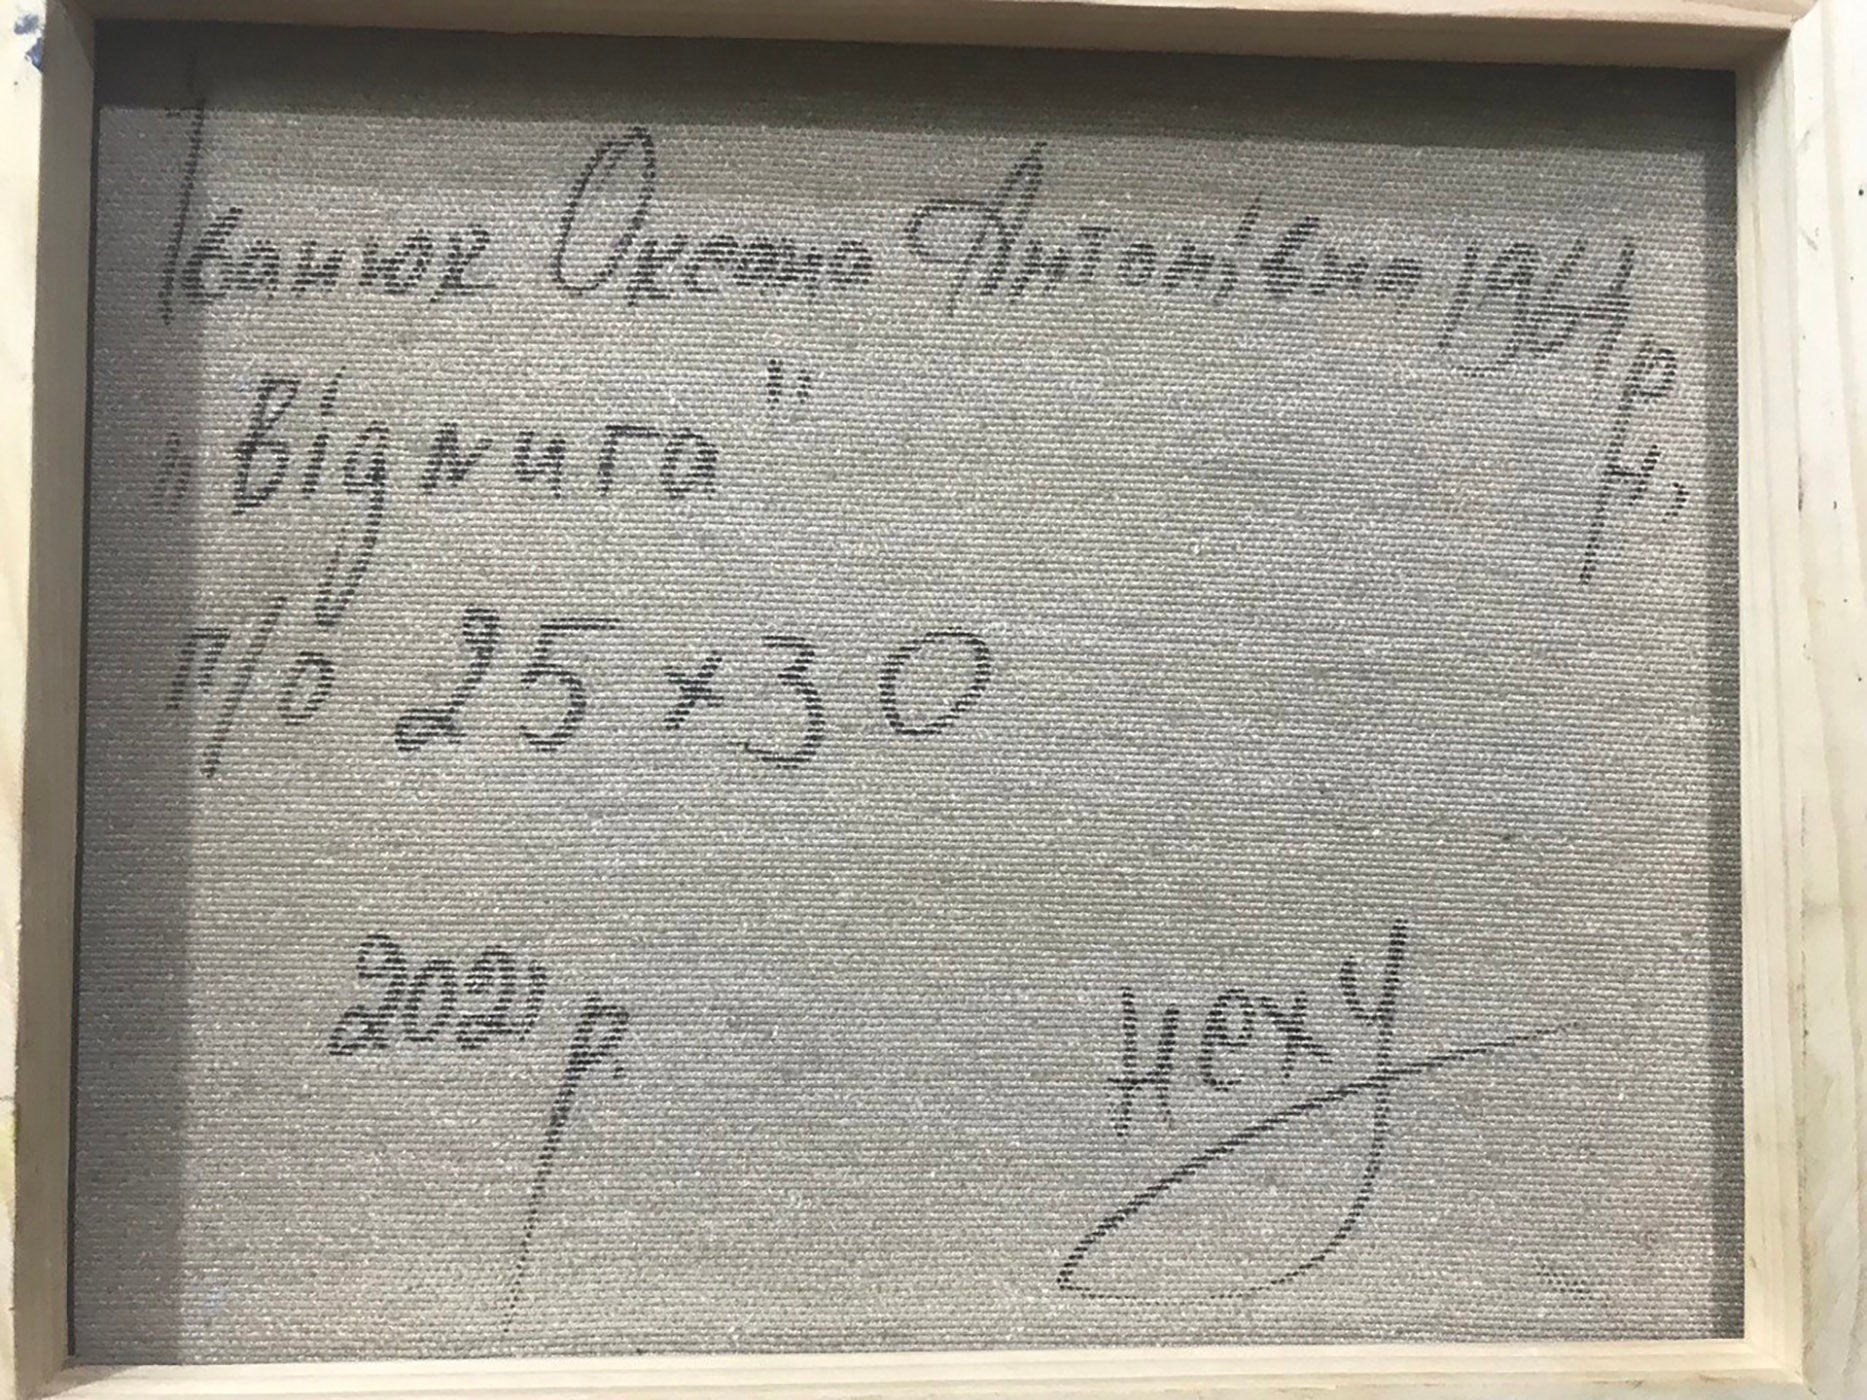 Іванюк Оксана Антонівна 1961 р.н,
„Відлига"
п/о 25×30
2021 р.
НСХУ